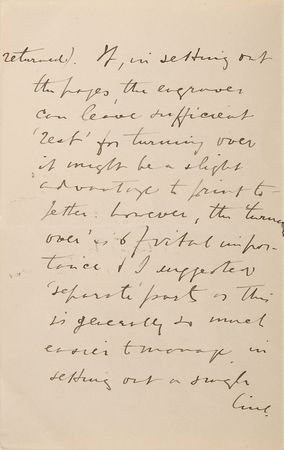 returned). If, in setting out
the pages, the engraver
can leave sufficient
'rest' for turning over
it might be a slight
advantage to print to-
gether. however, the 'turning
over' is of vital impor-
tance & I suggested
'separate' part as this
is generally so much
easier to manage in
setting out a single
line.